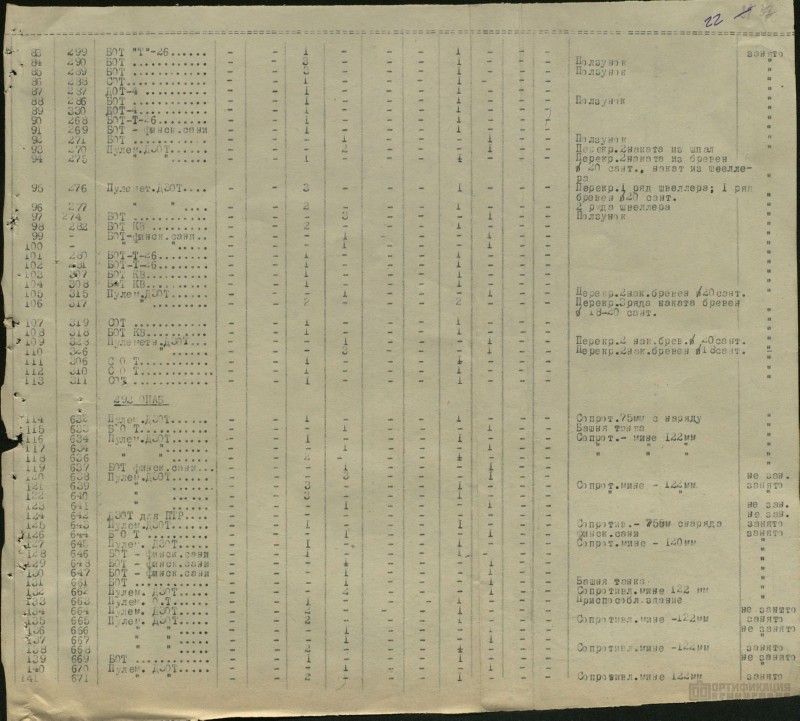 22
83 299 БОТ "Т"-26...... - - 1 - - - 1 - - - занято
84 290 БОТ .......... - - 3 - - - 1 - - - Ползунок "
85 289 БОТ .......... - - 3 - - - 1 - - - Ползунок "
86 288 СОТ .......... - - 1 - - - 1 - - - "
87 287 ДОТ-4 .......... - - 1 - - - 1 - - - "
88 286 БОТ .......... - - 1 - - - 1 - - - Ползунок "
89 330 ДОТ-4 .......... - - 1 - - - 1 - - - "
90 268 БОТ-Т-26....... - - 1 - - - 1 - - - "
91 269 БОТ - финск.сани - - 1 - - - 1 - - - "
92 271 БОТ .......... - - - 1 - - - 1 - - Ползунок "
93 270 Пулем.ДЗОТ.... - - - 2 - - - 1 - - Перекр.2наката из шпал "
94 275 " " ..... - - 1 - - - 4 - - - Перекр.2наката из бревен "
ø 20 сант., накат из швелле-
ра
95 276 Пулемет.ДЗОТ.... - - 3 - - - 1 - - - Перекр.1 ряд швеллера; 1 ряд "
бревен ø20 сант.
96 277 " " ..... - - 2 - - - 1 - - - 2 ряда швеллера "
97 274 БОТ .......... - - - 3 - - - 1 - - Ползунок "
98 282 БОТ КВ ........ - - 2 - - - 1 - - - "
99 - БОТ-финск.сани.. - - - 1 - - - 1 - - "
100 - " " ..... - - - 1 - - - 1 - - "
101 280 БОТ-Т-26....... - - 1 - - - 1 - - - "
102 281 БОТ-Т-26....... - - 1 - - - 1 - - - "
103 307 БОТ КВ........ - - 1 - - - 1 - - - "
104 308 БОТ КВ........ - - 1 - - - 1 - - - "
105 315 Пулем.ДЗОТ..... - - - 1 - - - 1 - - Перекр.2нак.бревен ø20сант. "
106 317 " " ..... - - 2 - - - 2 - - - Перекр.3ряда наката бревен "
ø 18-20 сант.
107 319 СОТ .......... - - 1 - - - 1 - - - "
108 318 БОТ КВ........ - - 1 - - - 1 - - - "
109 328 Пулеметн.ДЗОТ... - - - 1 - - - 1 - - Перекр.2 нак.брев.ø 20сант. "
110 326 " " ..... - - - 3 - - - 1 - - Перекр.2нак.бревен ø18сант. "
111 306 С О Т.......... - - 1 - - - 1 - - - "
112 310 С О Т.......... - - 1 - - - 1 - - - "
113 311 СОТ .......... - - 1 - - - 1 - - - "
293 ОПАБ
114 632 Пулем.ДЗОТ...... - - 1 - - - 1 - - - Сопрот.75мм снаряду "
115 633 Б О Т.......... - - - 1 - - - 1 - - Башня танка "
116 634 Пулем.ДЗОТ...... - - 1 - - - 1 - - - Сопрот.- мине 122мм "
117 634 " " ..... - - - 1 - - - 1 - - " " " "
118 636 " " ..... - - 2 - - - 4 - - - " " " "
119 637 БОТ финск.сани... - - - 1 - - - 1 - -
120 638 Пулем.ДЗОТ...... - - - 3 - - - 1 - - не зан.
121 639 " ...... - - 3 - - - 1 - - - Сопрот.мине - 122мм занято
122 640 " ...... - - 3 - - - 1 - - - " " "
123 641 " ...... - - - 1 - - - 1 - - не зан.
124 642 ДЗОТ для ПТР.... - - 1 - - - 1 - - - не зан.
125 643 Пулем.ДЗОТ...... - - 1 - - - 1 - - - Сопротив.- 75мм снаряда занято
126 644 Б О Т .......... - - - 1 - - - 1 - - финск.сани занято
127 645 Пулем. ДЗОТ..... - - 1 - - - 1 - - - Сопрот.мине - 120мм "
128 646 БОТ - финск.сани - - 1 - - - 1 - - - "
129 648 БОТ - финск.сани - - - 1 - - - 1 - - "
130 647 БОТ - финск.сани - - - 1 - - - 1 - - "
131 661 БОТ .......... - - - 1 - - - 1 - - Башня танка "
132 662 Пулем. ДЗОТ..... - - - 2 - - - 1 - - Сопротивл.мине 122 мм "
133 663 Пулем. О.Т...... - - 1 - - - 1 - - - Приспособл.здание "
134 664 Пулем. ДЗОТ..... - - 2 - - - 1 - - - не занято
135 665 Пулем. ДЗОТ..... - - 2 - - - 1 - - - Сопротивл.мине -122мм занято
136 666 " " ..... - - - 1 - - - 1 - - не занято
137 667 " " ..... - - - 1 - - - 1 - - "
138 668 " " ..... - - 2 - - - 4 - - - Сопротивл.мине -122мм занято
139 669 БОТ .......... - - 1 - - - 1 - - - не занято
140 670 Пулем. ДЗОТ..... - - - 1 - - - 1 - - "
141 671 " " ..... - - 2 - - - 1 - - - Сопротивл.мине 122мм занято
ФОРТИФИКАЦИЯ